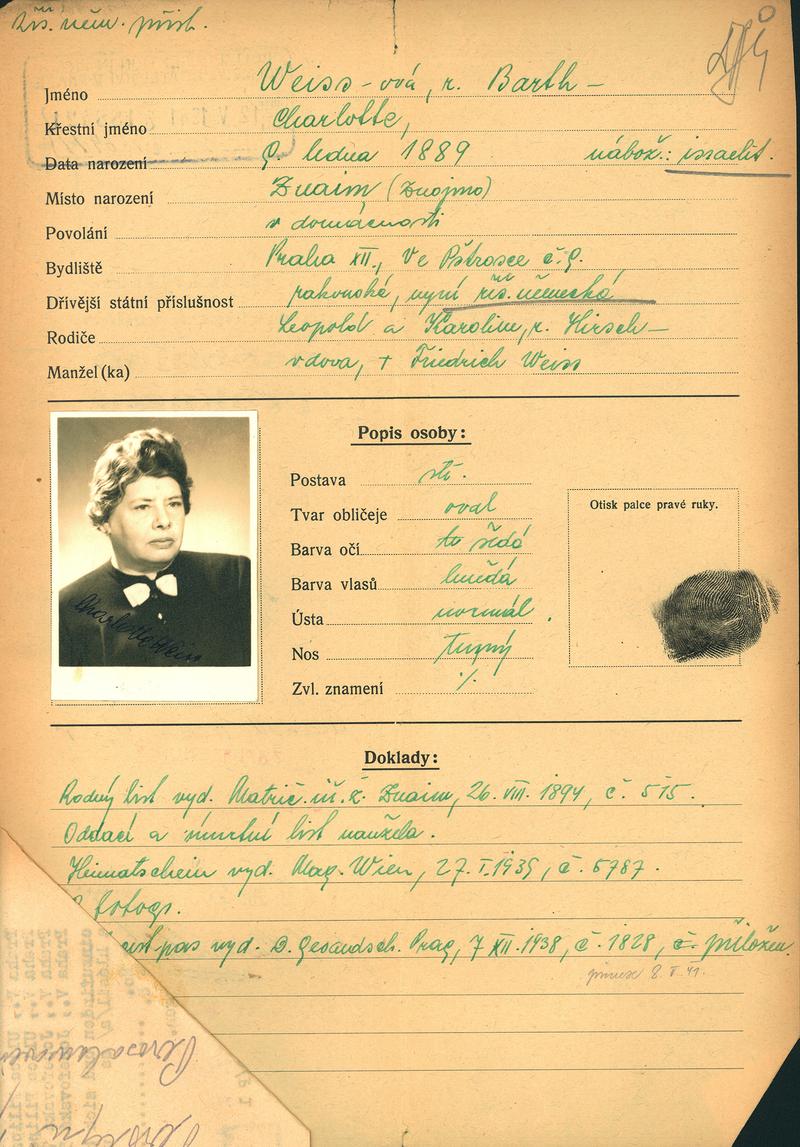 Říš. něm. přísl.
Jméno Weiss-ová, r. Barth-
Křestní jméno Charlotte,
Data narození 9. ledna 1889 nábož.: israelit.
Místo narození Znaim (Znojmo)
Povolání v domácnosti
Bydliště Praha XII., Ve Pštrosce č. 9.
Dřívější státní příslušnost rakouská, nyní říš. německá
Rodiče Leopold a Karoline, r. Hirsch-
Manžel (ka) vdova, + Friedrich Weiss
Popis osoby:
Postava stř.
Tvar obličeje oval
Barva očí šedá
Barva vlasů hnědá
Ústa normál.
Nos
Zvl. znamení ./.
Otisk palce pravé ruky.
Charlotte Weiss
Doklady:
Rodný list vyd. Matrič. ú. ž. Znaim, 26. VIII. 1894, č. 515.
Oddací a úmrtní list manžela.
Heimatschein vyd. Mag. Wien, 27. I. 1939, č. 5787.
fotogr.
pas vyd. D. Gesandsch. Prag, 7 XII. 1938, č. 1828, č. přiložen.
8. V. 41.